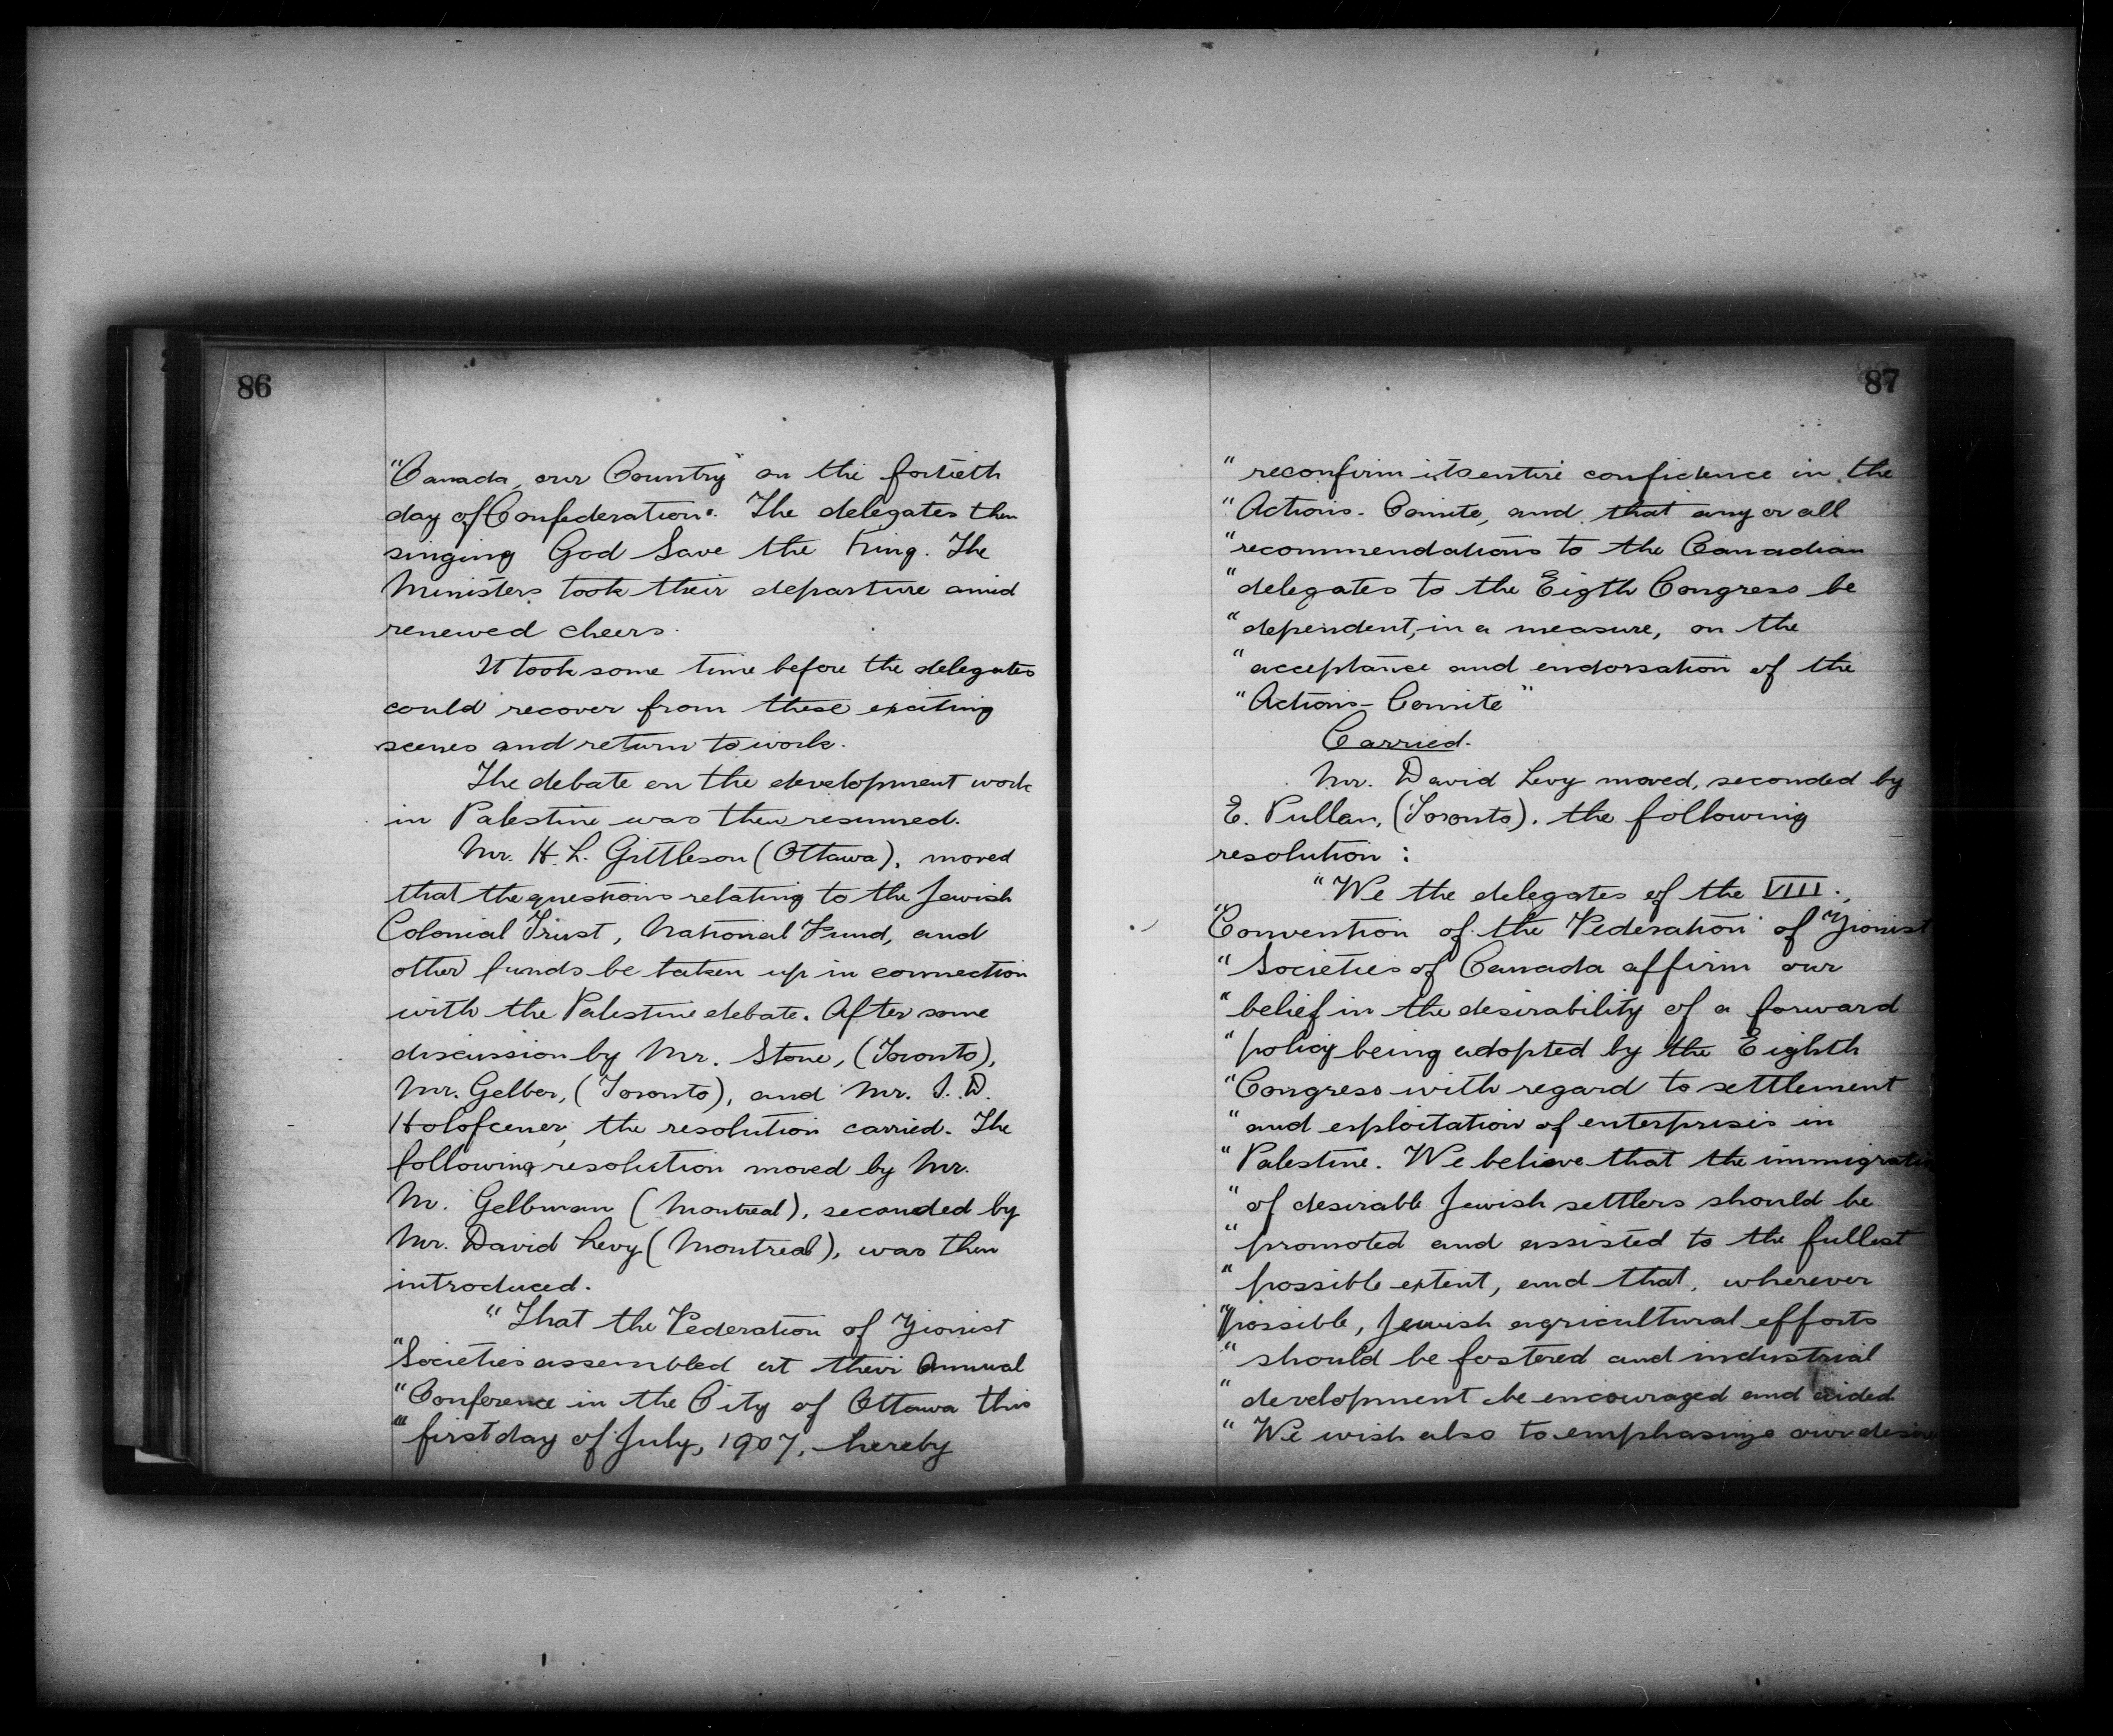 86
"Canada, our Country" on the fortieth
day of Confederation. The delegates then
singing God Save the King. The
Ministers took their departure amid
renewed cheers.
It took some time before the delegates
could recover from these exciting
scenes and return to work.
The debate on the development work
in Palestine was then resumed.
Mr. H. L. Gittleson (Ottawa), moved
that the questions relating to the Jewish
Colonial Trust, National Fund, and
other funds be taken up in connection
with the Palestine debate. After some
discussion by Mr. Stone, (Toronto),
Mr. Gelber, (Toronto), and Mr. I. D.
Holofcener, the resolution carried. The
following resolution moved by Mr.
M. Gelbman (Montreal), seconded by
Mr. David Levy (Montreal), was then
introduced.
"That the Federation of Zionist
"Societies assembled at their Annual
"Conference in the City of Ottawa this
"first day of July, 1907, hereby
87
"reconfirm its entire confidence in the
"Actions-Comite, and that any or all
"recommendations to the Canadian
"delegates to the Eigth Congress be
"dependent, in a measure, on the
"acceptance and endorsation of the
"Actions-Comite"
Carried.
Mr. David Levy moved, seconded by
E. Pullan, (Toronto), the following
resolution:
"We the delegates of the VIII.
"Convention of the Federation of Zionist
"Societies of Canada affirm our
"belief in the desirability of a forward
"policy being adopted by the Eighth
"Congress with regard to settlement
"and exploitation of enterprises in
"Palestine. We believe that the immigration
"of desirable Jewish settlers should be
"promoted and assisted to the fullest
"possible extent, and that, wherever
"possible, Jewish agricultural efforts
"should be fostered and industrial
"development be encouraged and aided.
"We wish also to emphasize our desire